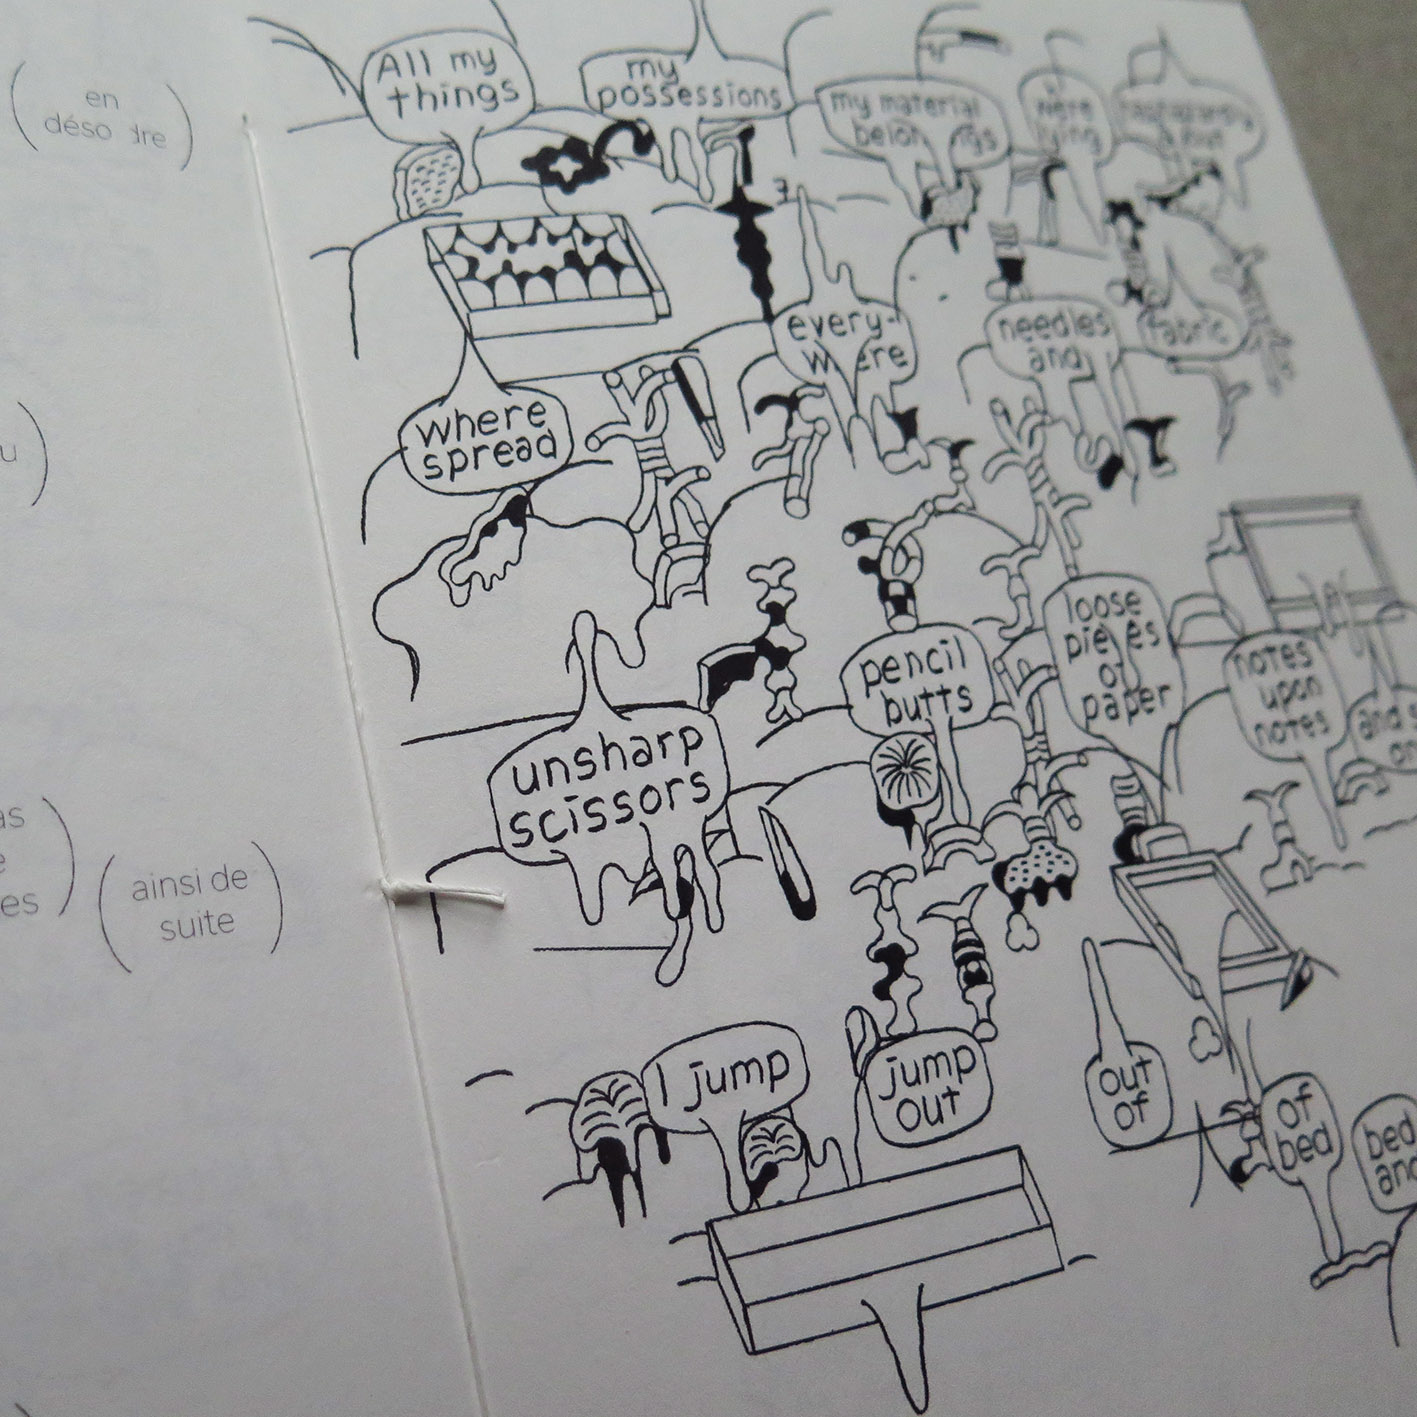 en
déso dre
u
as
e
es
ainsi de
suite
All my
things
my
possessions
my material
belongings
were
lying
every-
where
needles
and
fabric
where
spread
loose
pieces
of
paper
pencil
butts
notes
upon
notes
and s
on
unsharp
scissors
I jump
jump
out
out
of
of
bed
bed
and